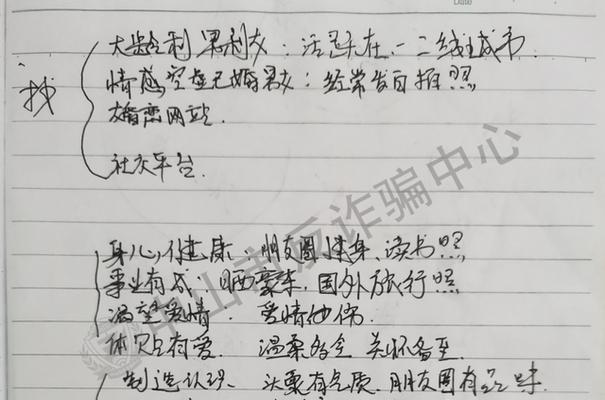 Date
找
大龄剩男剩女：活跃在一二线城市
情感空虚已婚男女：经常发自拍照
婚恋网站
社交平台
身心健康 朋友圈健身、读书照
事业有成 晒豪车，国外旅行照
渴望爱情 爱情
体贴有爱 温柔 关怀备至
制造认识、头像有气质 朋友圈有品味
中山市反诈骗中心